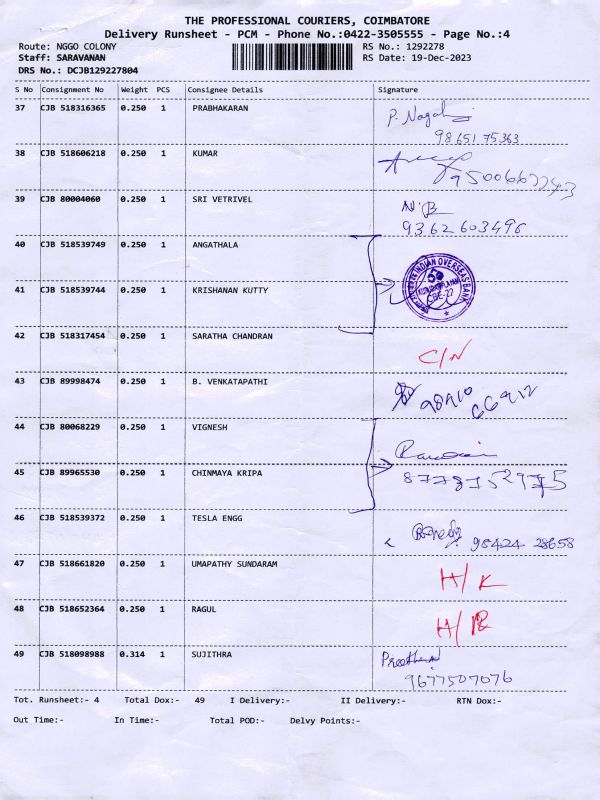 THE PROFESSIONAL COURIERS, COIMBATORE
Delivery Runsheet - PCM - Phone No.:0422-3505555 - Page No.:4
Route: NGGO COLONY RS No.: 1292278
Staff: SARAVANAN RS Date: 19-Dec-2023
DRS No.: DCJB129227804
S No Consignment No Weight PCS Consignee Details Signature
37 CJB 518316365 0.250 1 PRABHAKARAN P. Nagah
98651 75363
38 CJB 518606218 0.250 1 KUMAR
39 CJB 80004060 0.250 1 SRI VETRIVEL N.B
9362603496
40 CJB 518539749 0.250 1 ANGATHALA
INDIAN OVERSEAS BANK
41 CJB 518539744 0.250 1 KRISHANAN KUTTY
CBE-22
42 CJB 518317454 0.250 1 SARATHA CHANDRAN
C/N
43 CJB 89998474 0.250 1 B. VENKATAPATHI
44 CJB 80068229 0.250 1 VIGNESH
45 CJB 89965530 0.250 1 CHINMAYA KRIPA
8778752975
46 CJB 518539372 0.250 1 TESLA ENGG
98424 28658
47 CJB 518661820 0.250 1 UMAPATHY SUNDARAM H/K
48 CJB 518652364 0.250 1 RAGUL
49 CJB 518098988 0.314 1 SUJITHRA
9677507076
Tot. Runsheet:- 4 Total Dox:- 49 I Delivery:- II Delivery:- RTN Dox:-
Out Time:- In Time:- Total POD:- Delvy Points:-